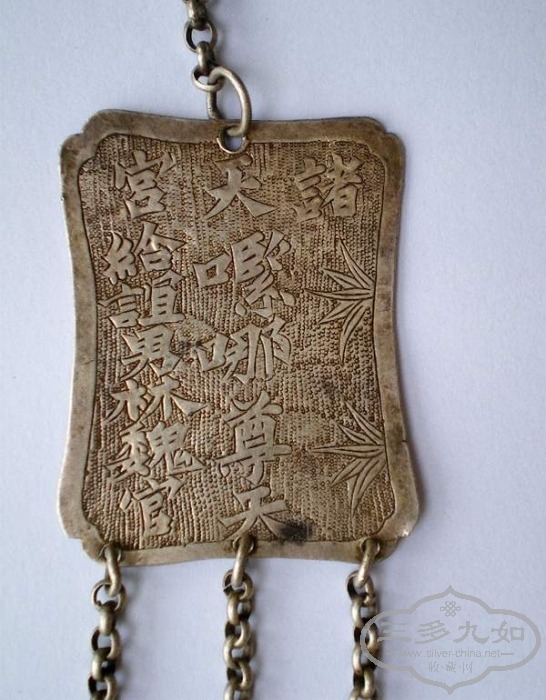 諸天宮
哪尊天
給誼男林魏官
三多九如
www.silver-china.net
收藏网